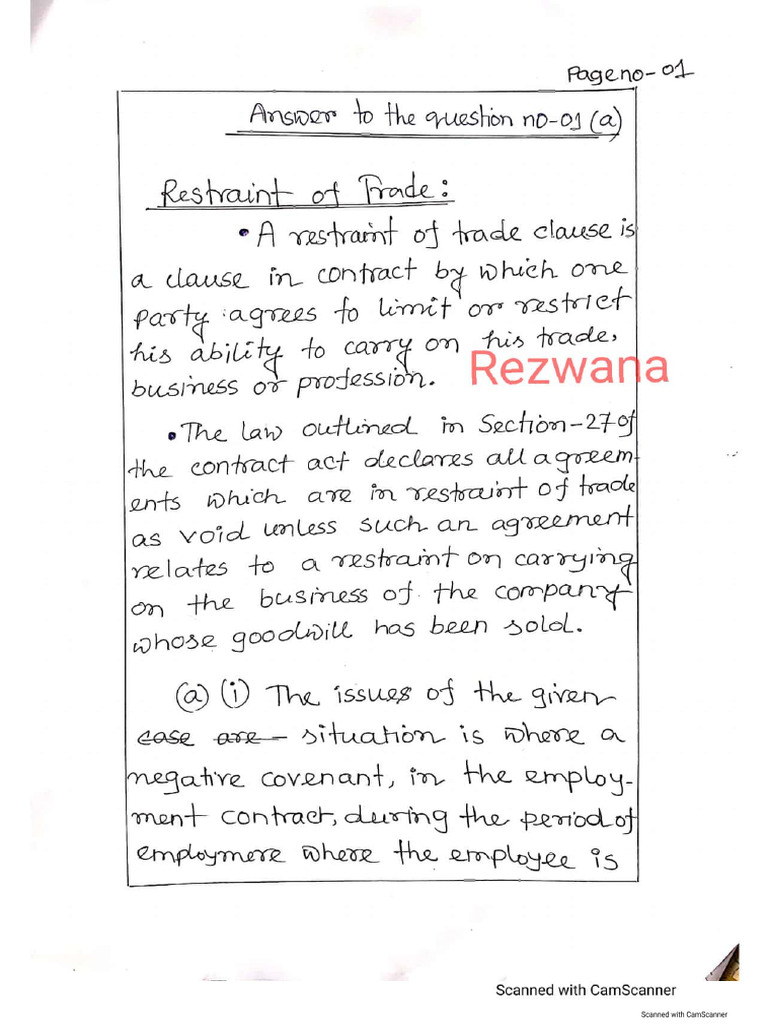 Page no-01
Answer to the question no-01 (a)
Restraint of Trade:
• A restraint of trade clause is
a clause in contract by which one
party agrees to limit or restrict
his ability to carry on his trade,
business or profession.
Rezwana
• The law outlined in Section-27 of
the contract act declares all agreem-
ents which are in restraint of trade
as void unless such an agreement
relates to a restraint on carrying
on the business of the company
whose goodwill has been sold.
(a) (i) The issues of the given
case are situation is where a
negative covenant, in the employ-
ment contract, during the period of
employmere where the employee is
Scanned with CamScanner
Scanned with CamScanner